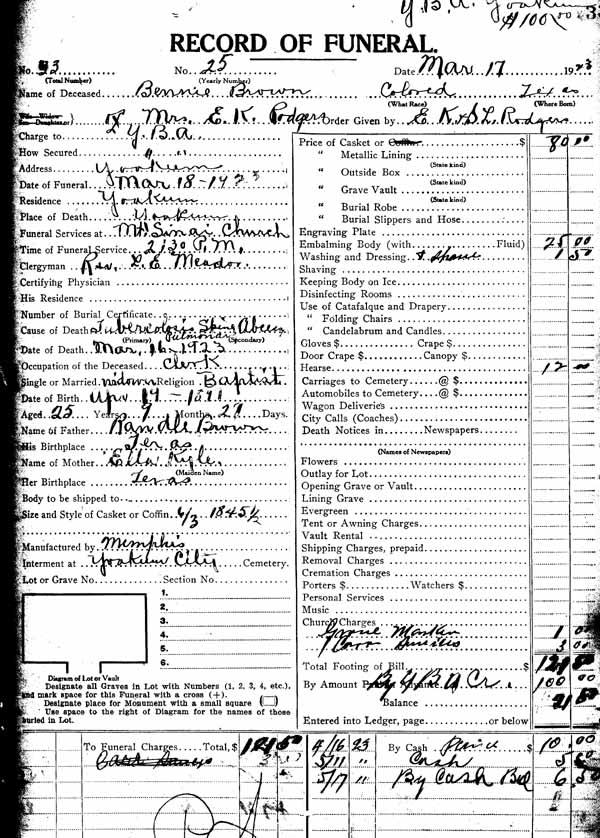 Y.B.A. Yoakum
$100.00
RECORD OF FUNERAL.
No. 43 No. 25 Date Mar 17 1923
(Total Number) (Yearly Number)
Name of Deceased Bennie Brown Colored Texas
(What Race) (Where Born)
Of Mrs. E. K. Rodgers Order Given by E. K. & S. L. Rodgers
Charge to Y.B.A.
How Secured " "
Address Yoakum
Date of Funeral Mar 18-1923
Residence Yoakum
Place of Death Yoakum
Funeral Services at Mt Sinai Church
Time of Funeral Service 2:30 P.M.
Clergyman Rev. E. Meador
Certifying Physician
His Residence
Number of Burial Certificate
Cause of Death Tuberculosis
(Primary) Pulmonary (Secondary)
Date of Death Mar. 16-1923
Occupation of the Deceased Clerk
Single or Married widown Religion Baptist
Date of Birth 19 -
Aged 25 Years 9 Months, 27 Days.
Name of Father Randle Brown
His Birthplace Texas
Name of Mother Ella
(Maiden Name)
Her Birthplace Texas
Body to be shipped to
Size and Style of Casket or Coffin 6/3
Manufactured by Memphis
Interment at Yoakum City Cemetery.
Lot or Grave No. Section No.
1.
2.
3.
4.
5.
6.
Diagram of Lot or Vault
Designate all Graves in Lot with Numbers (1, 2, 3, 4, etc.),
and mark space for this Funeral with a cross (+).
Designate place for Monument with a small square (□)
Use space to the right of Diagram for the names of those
buried in Lot.
Price of Casket or Coffin $ 80 00
" Metallic Lining
(State kind)
" Outside Box
(State kind)
" Grave Vault
(State kind)
" Burial Robe
" Burial Slippers and Hose
Engraving Plate
Embalming Body (with Fluid) 25 00
Washing and Dressing & Shave 1 50
Shaving
Keeping Body on Ice
Disinfecting Rooms
Use of Catafalque and Drapery
" Folding Chairs
" Candelabrum and Candles
Gloves $ Crape $
Door Crape $ Canopy $
Hearse 12 00
Carriages to Cemetery @ $
Automobiles to Cemetery @ $
Wagon Deliveries
City Calls (Coaches)
Death Notices in Newspapers
(Names of Newspapers)
Flowers
Outlay for Lot
Opening Grave or Vault
Lining Grave
Evergreen
Tent or Awning Charges
Vault Rental
Shipping Charges, prepaid
Removal Charges
Cremation Charges
Porters $ Watchers $
Personal Services
Music
Church Charges
Grave Marker 1 00
3 00
Total Footing of Bill $ 121 50
By Amount By Y B A Cr. 100 00
Balance 21 50
Entered into Ledger, page or below
To Funeral Charges Total, $ 121 50 4/16 23 By Cash $ 10 00
5/11 " Cash 5
5/17 " By Cash Bal 6 50